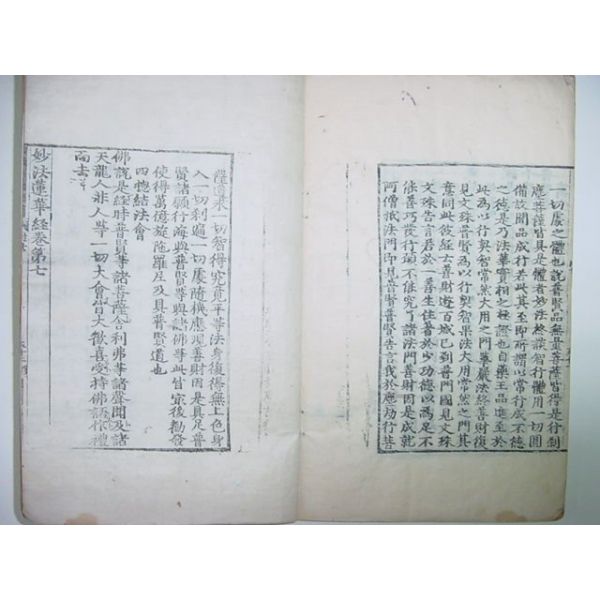 一切處之體也說普賢品無量菩薩皆得是行到
應菩薩皆具是體者妙法終談智行體用一切圓
備故聞品成行若此其至即所謂以常行成不德
之德是乃法華實相之極證也自藥王品進至於
此為以行契智常然大用之門華嚴法終善財復
見文殊普賢為以行契智果法大用常然之門其
意同此故經云善財遊百城已到普門國見文殊
文殊告言若於一善生住著於少功德以為足不
能善巧發行願不能究了諸法門善財因是成就
阿僧祇法門即見普賢普賢告言我於應劫行菩
薩道求一切智得究竟平等法身復得無上色身
入一切刹遍一切處隨機應現善財因是具足普
賢諸願行海與普賢等與諸佛等此皆最後勸發
使得萬億旋陁羅尼及具普賢道也
四總結法會
佛說是經時普賢等諸菩薩舍利弗等諸聲聞及諸
天龍人非人等一切大會皆大歡喜受持佛語作禮
而去
妙法蓮華經卷第七